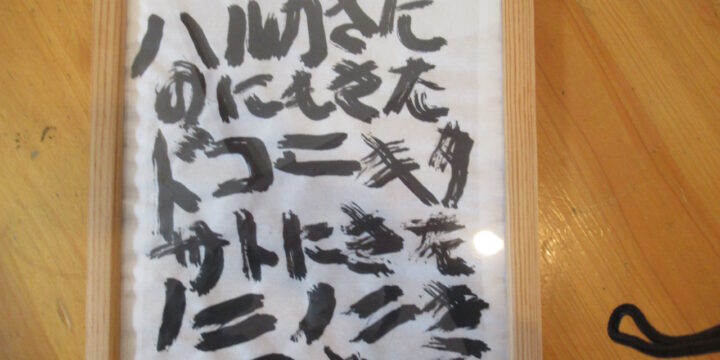 ハルがきた
のにもきた
ドコニキタ
サトにきた
ノニノニ